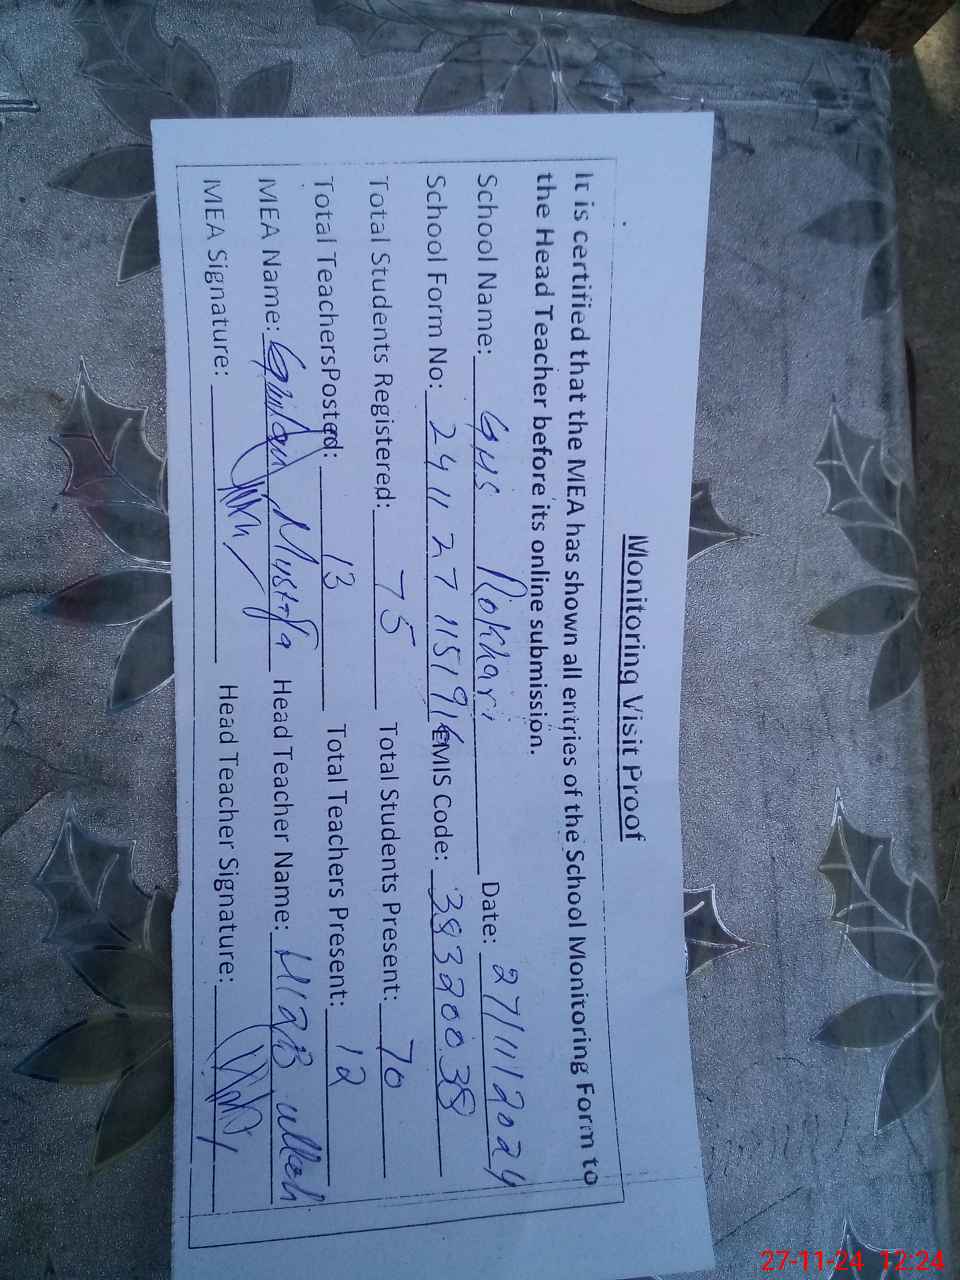 Monitoring Visit Proof
It is certified that the MEA has shown all entries of the School Monitoring Form to
the Head Teacher before its online submission.
School Name: GHS Rokhari Date: 27/11/2024
School Form No: 24112711519 EMIS Code: 38320038
Total Students Registered: 75 Total Students Present: 70
Total TeachersPosted: 13 Total Teachers Present: 12
MEA Name: Ghulam Mustafa Head Teacher Name: ullah
MEA Signature: Head Teacher Signature:
27-11-24 12:24